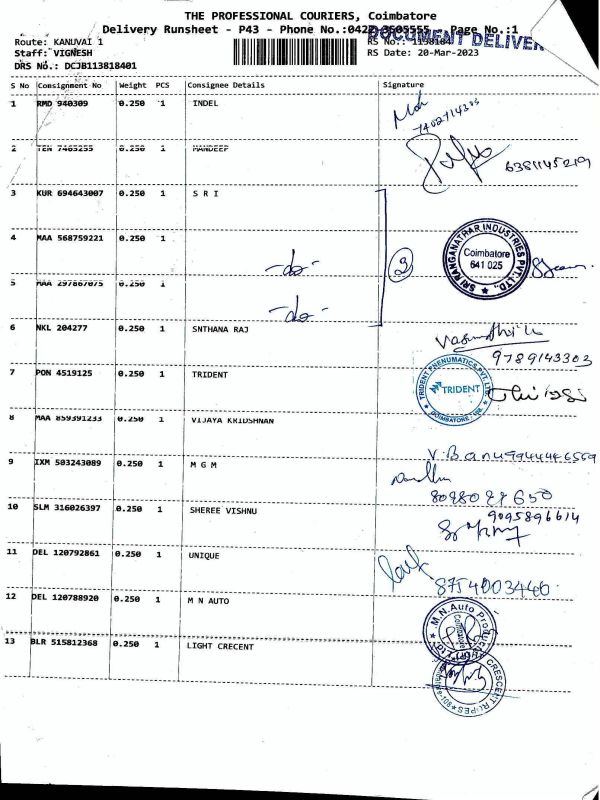 THE PROFESSIONAL COURIERS, Coimbatore
Delivery Runsheet - P43 - Phone No.:0422 3505555, Page No.:1
DOCUMENT DELIVER
Route: KANUVAI 1
RS No.: 1198184
Staff: VIGNESH
RS Date: 20-Mar-2023
DRS No.: DCJB113818401
S No Consignment No Weight PCS Consignee Details Signature
1 RMD 940309 0.250 1 INDEL
2 TEN 7465255 0.250 1 MANDEEP
6381145219
3 KUR 694643007 0.250 1 S R I
4 MAA 568759221 0.250 1
SRI RANGANATHAR INDUSTRIES PVT. LTD.,
Coimbatore
641 025
-do-
3
5 MAA 297867075 0.250 1
-do-
6 NKL 204277 0.250 1 SNTHANA RAJ
9789143303
7 PON 4519125 0.250 1 TRIDENT
TRIDENT PNEUMATICS PVT. LTD.
TRIDENT
COIMBATORE
8 MAA 859391233 0.250 1 VIJAYA KRIDSHNAN
V. Banu 9944446569
9 IXM 503243089 0.250 1 M G M
8098087650
10 SLM 316026397 0.250 1 SHEREE VISHNU
9095896614
11 DEL 120792861 0.250 1 UNIQUE
8754003440
12 DEL 120788920 0.250 1 M N AUTO
M.N. Auto Products
Coimbatore
13 BLR 515812368 0.250 1 LIGHT CRECENT
CRESCENT